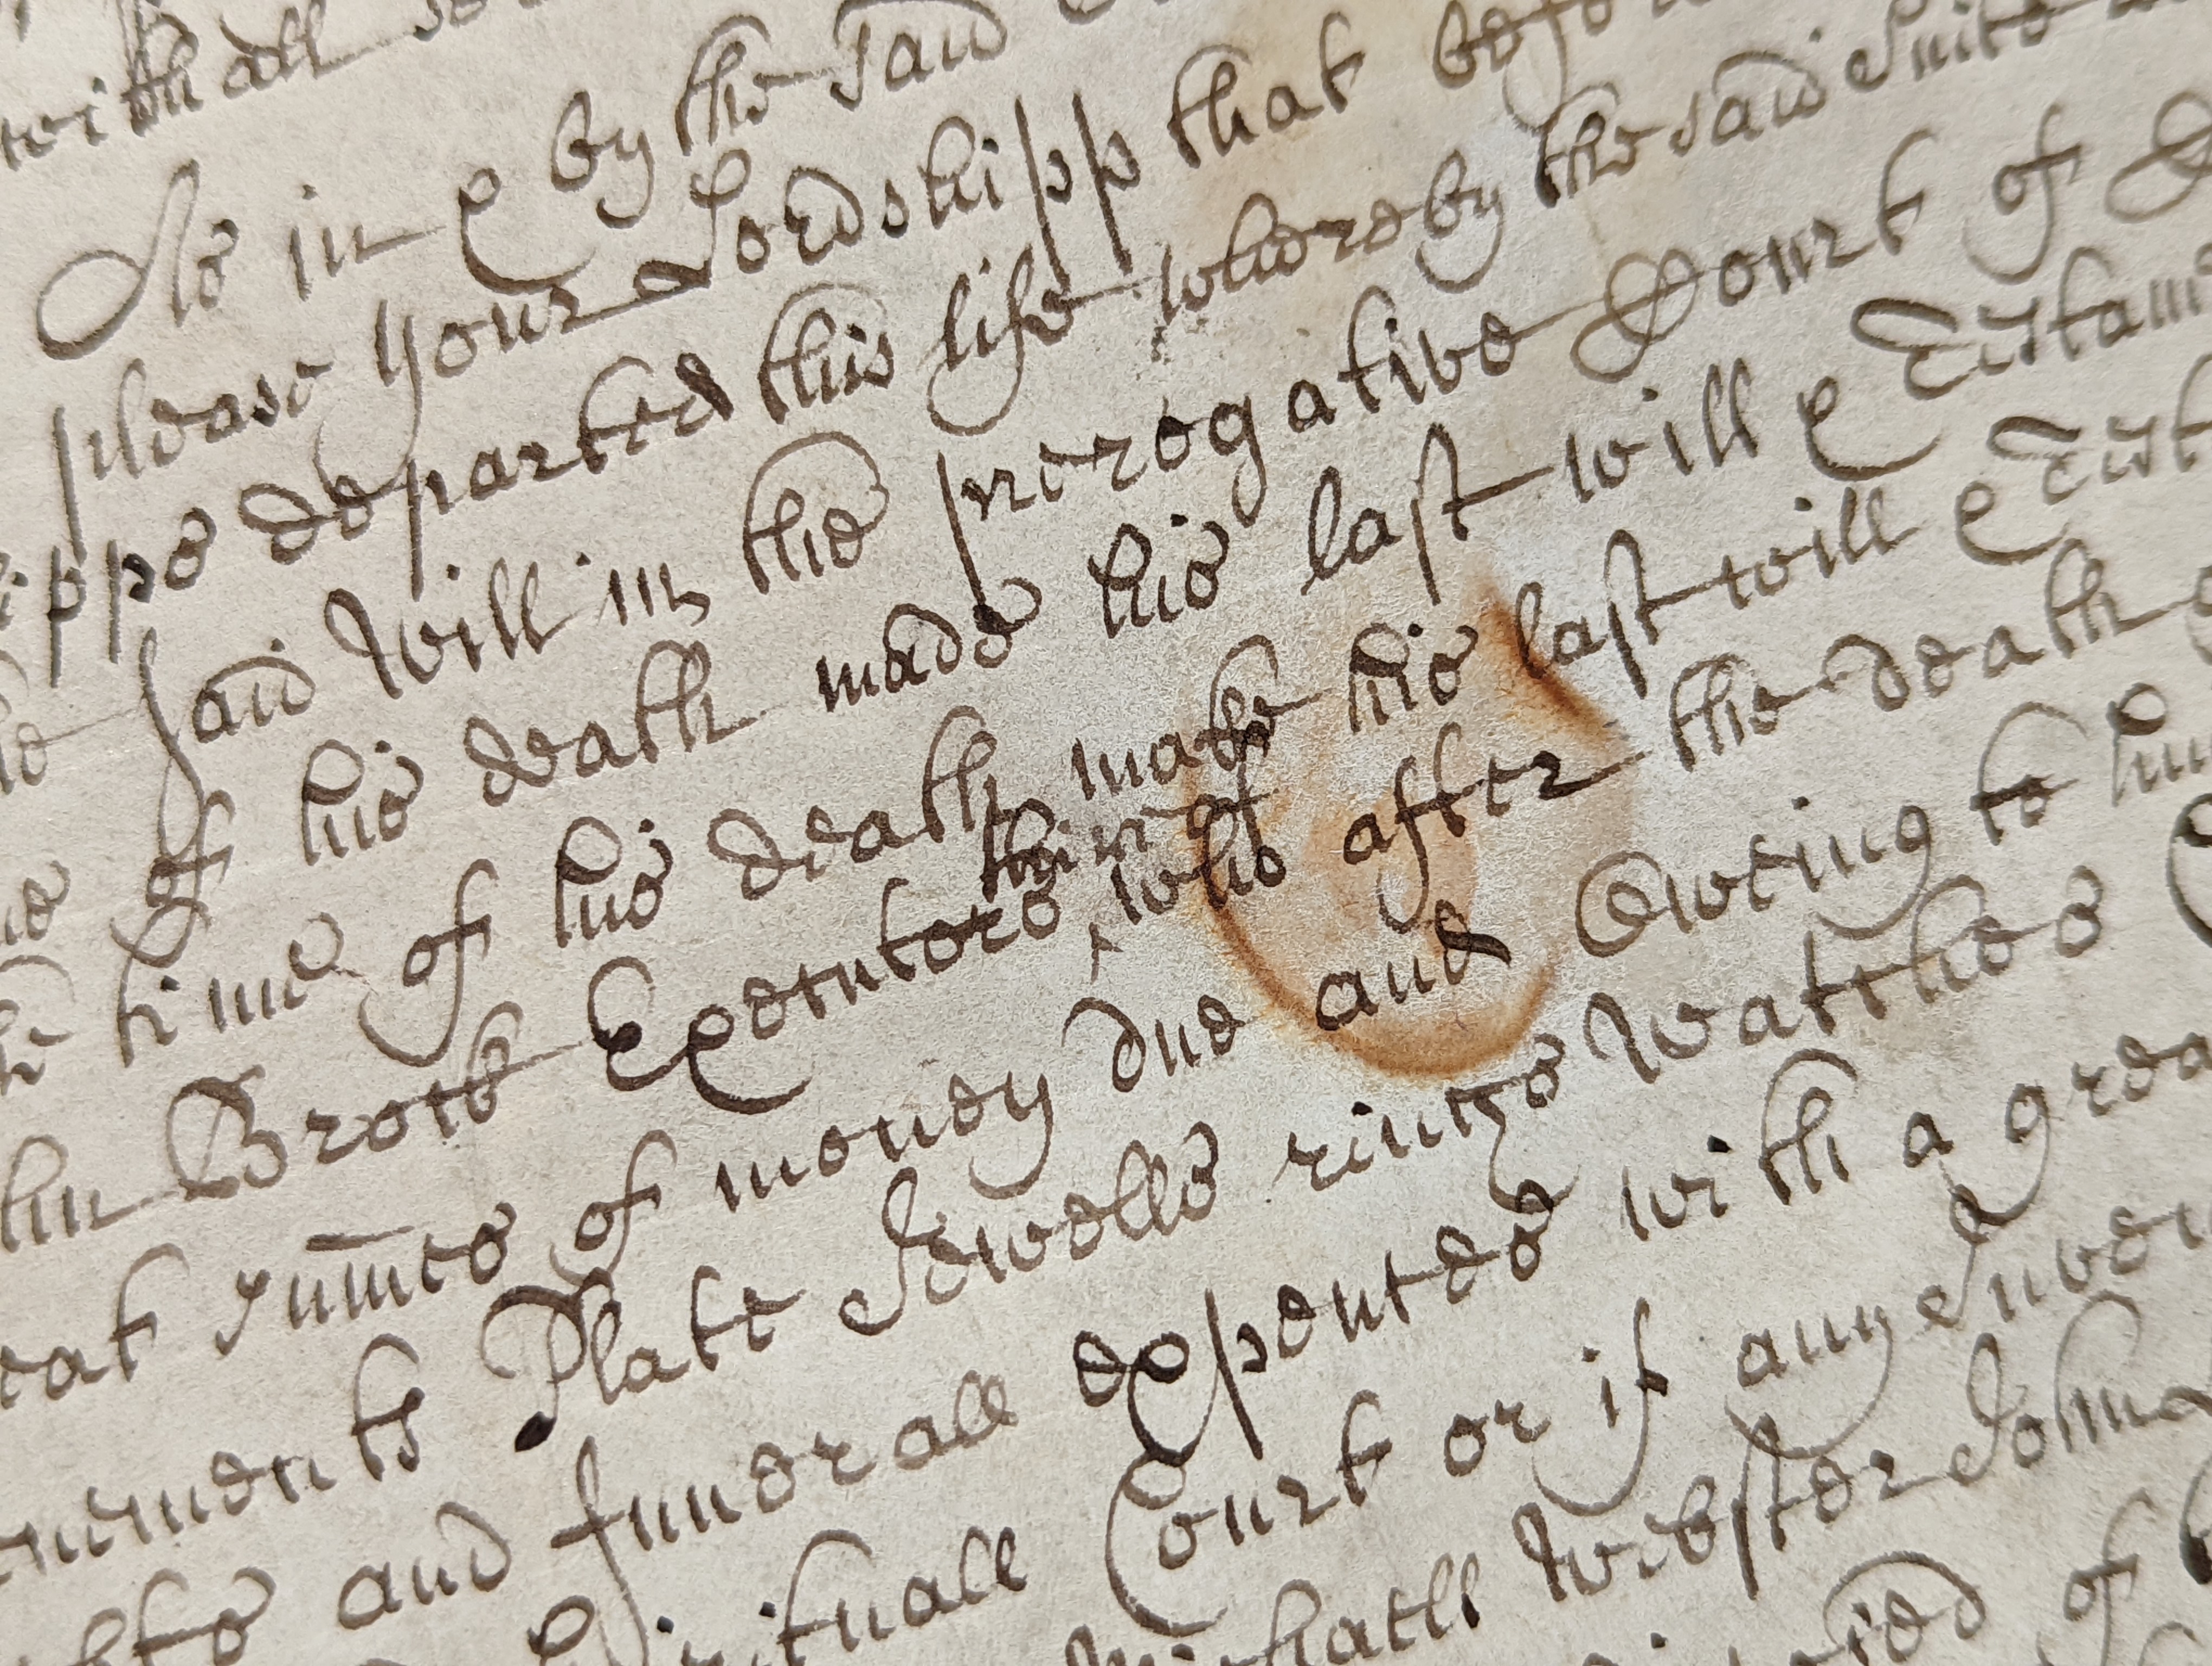 with all
As in & by the said
please your Lordshipp that befo
ippe departed this life whereby the said Suite
said Will in the prerogative Court of
of his death made his last will & Testam
time of his death make his last will & Test
thereof
hn Brock Executors who after the death
eat sum̄es of money due and Oweing to hi
Plate Jewells rings Watches
and funerall expences with a grea
Court or if any Inven
Webster John
of